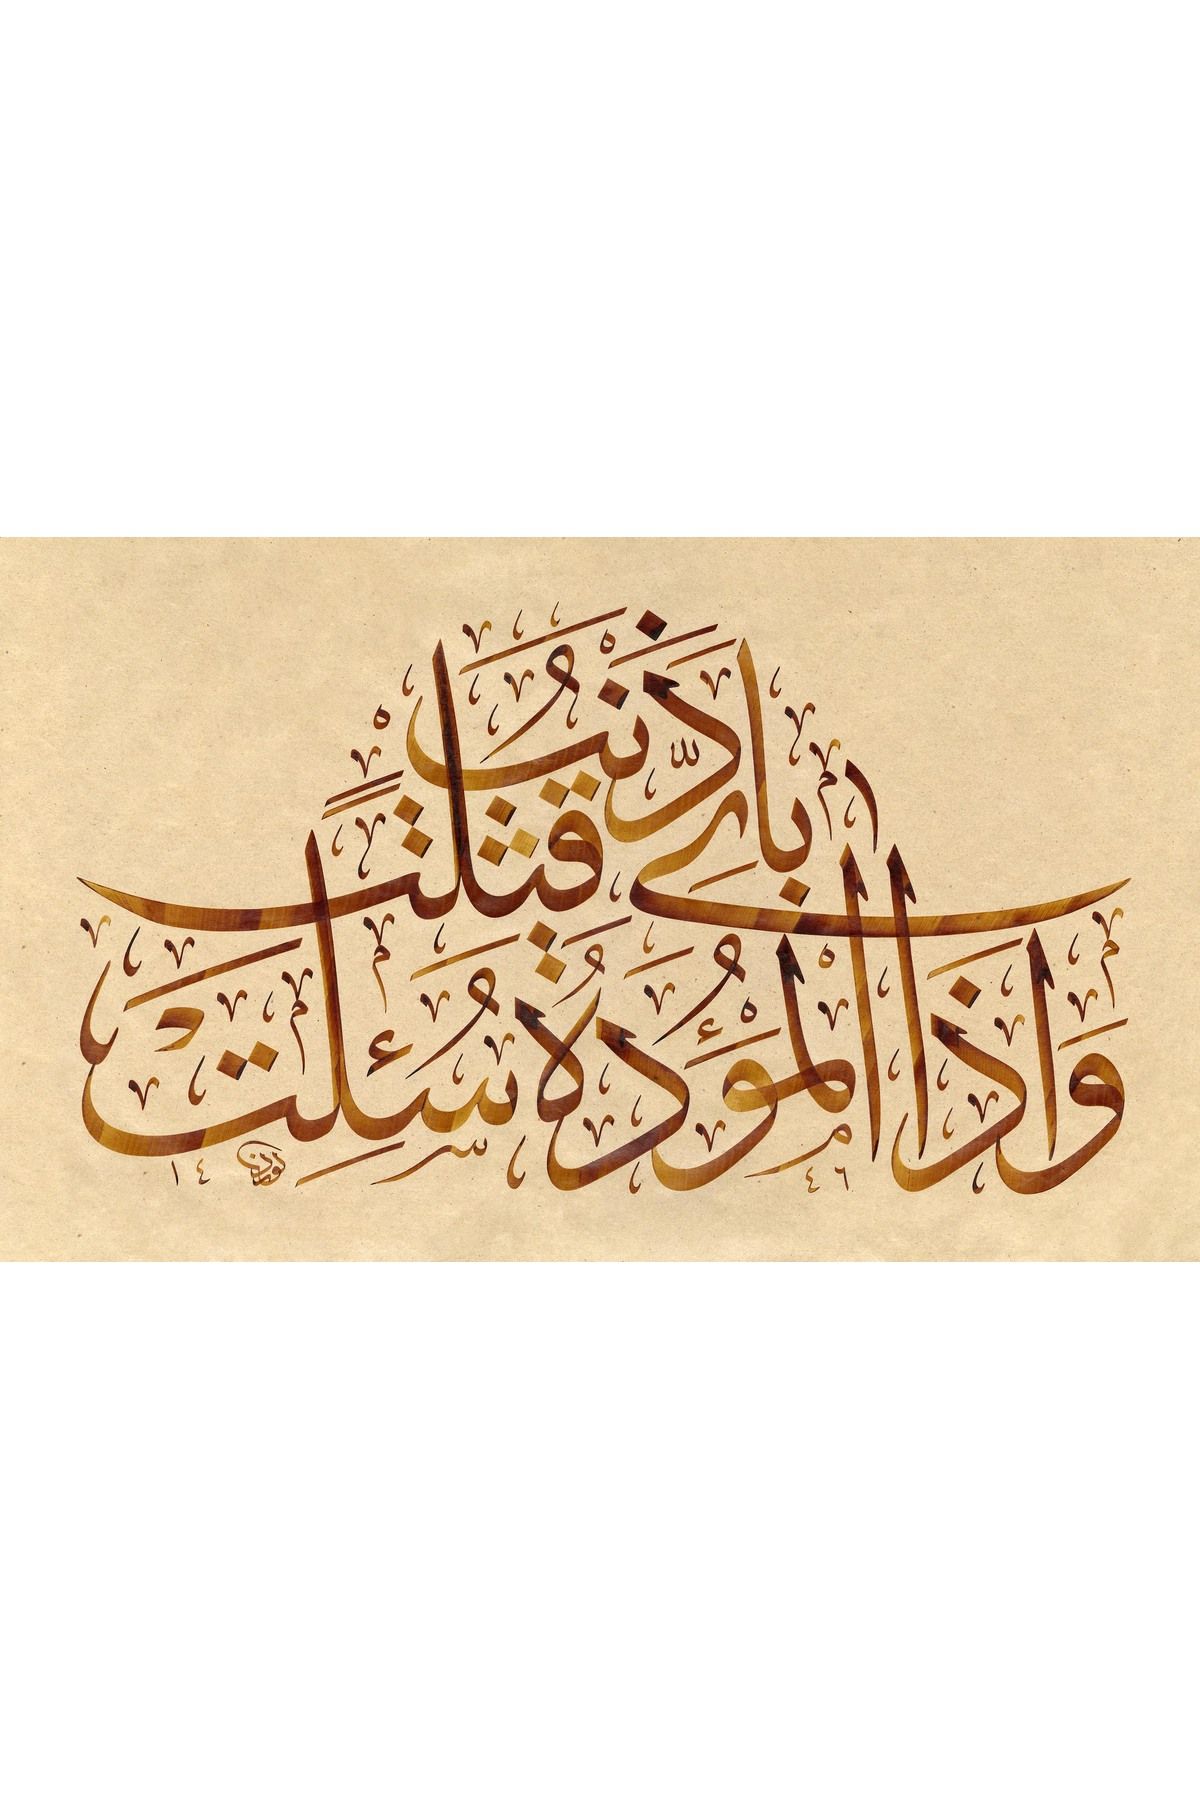 وَإِذَا الْمَوْءُدَةُ سُئِلَتْ
بِأَيِّ ذَنْبٍ قُتِلَتْ
١٤ ٤٦